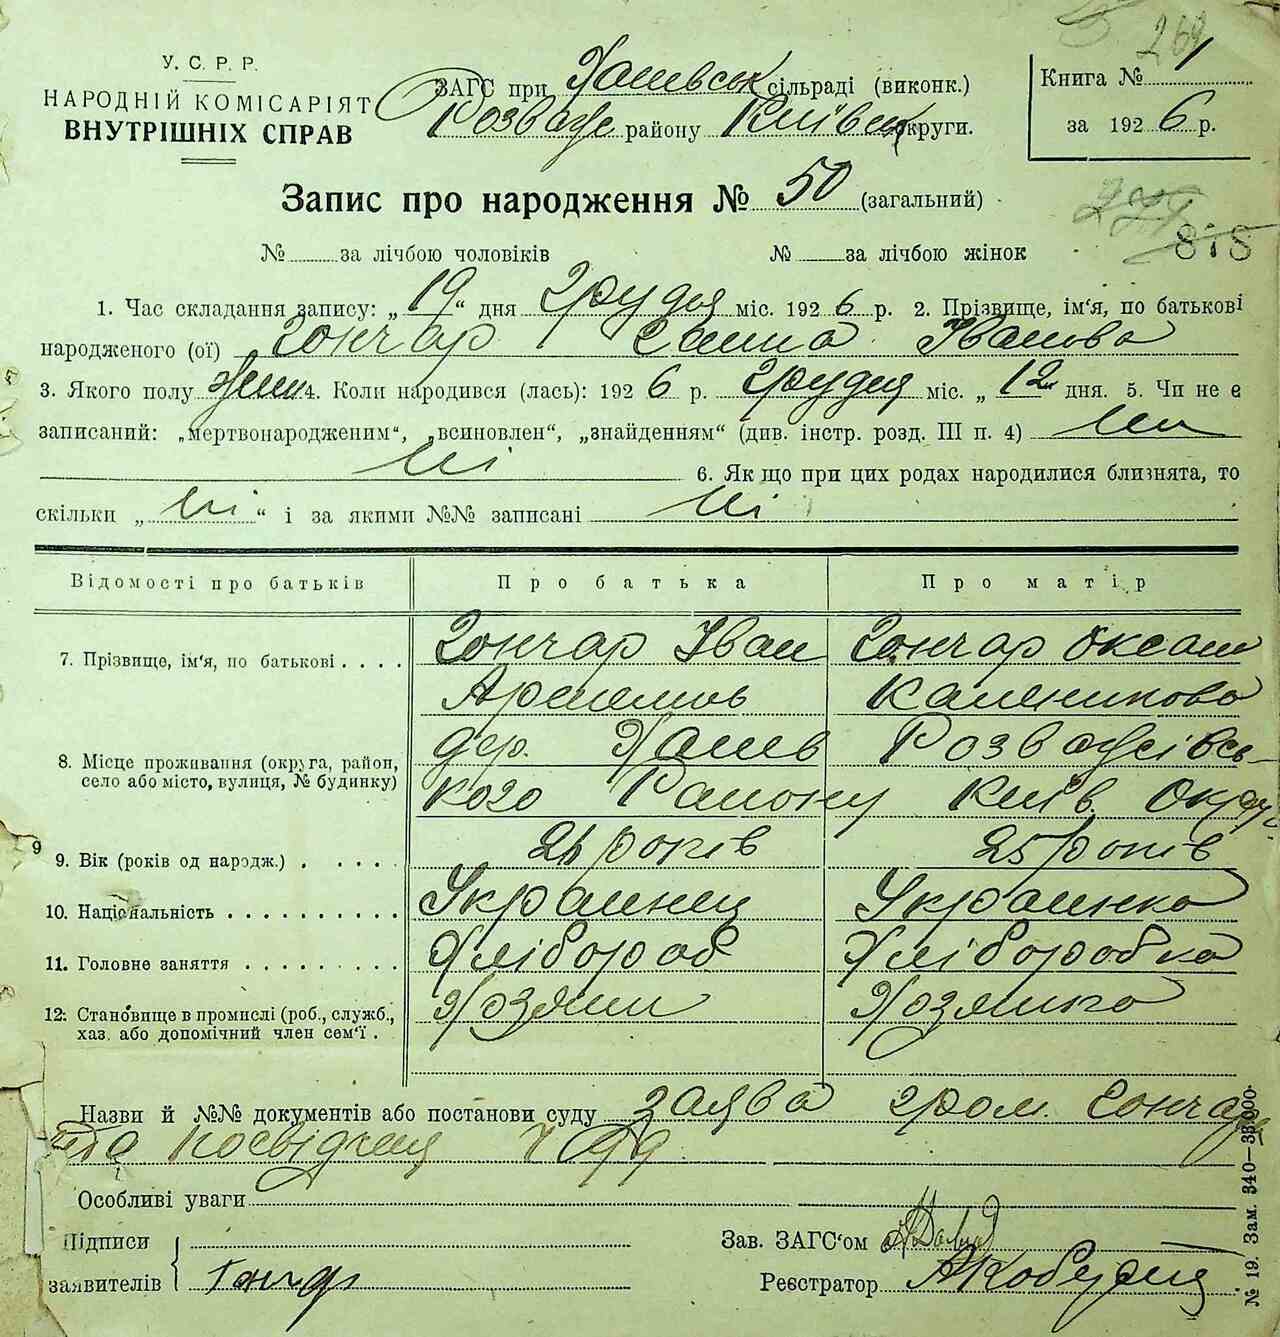 269
У. С. Р. Р.
НАРОДНІЙ КОМІСАРІЯТ
ВНУТРІШНІХ СПРАВ
ЗАГС при сільраді (виконк.)
Розваж району Київськ округи.
Книга № 1
за 1926 р.
Запис про народження № 50 (загальний)
818
№ за лічбою чоловіків № за лічбою жінок
1. Час складання запису: „19“ дня Грудня міс. 1926 р. 2. Прізвище, ім‘я, по батькові
народженого (ої) Гончар Ганна Іванова
3. Якого полу жін 4. Коли народився (лась): 1926 р. Грудня міс. „12 дня. 5. Чи не є
записаний: „мертвонародженим“, „всиновлен“, „знайденням“ (див. інстр. розд. III п. 4) Ні
Ні 6. Як що при цих родах народилися близнята, то
скільки „Ні“ і за якими №№ записані Ні
Відомості про батьків Про батька Про матір
7. Прізвище, ім‘я, по батькові . . . . Гончар Іван Гончар Оксана
Каленикова
8. Місце проживання (округа, район, село або місто, вулиця, № будинку) дер. Розважівсь-
кого Району Київ. Округ
9
9. Вік (років од народж.) . . . . . років 25 років
10. Національність . . . . . . . . . . Украинец Украинка
11. Головне заняття . . . . . . . . . Хлібороб Хліборобка
12. Становище в промислі (роб., служб., хаз. або допомічний член сем‘ї . Хозяин Хозяйка
Назви й №№ документів або постанови суду заява гром. Гончара
та
Особливі уваги
Підписи
заявителів Гончар
Зав. ЗАГС‘ом
Реєстратор
№ 19. Зам. 340—33.000.